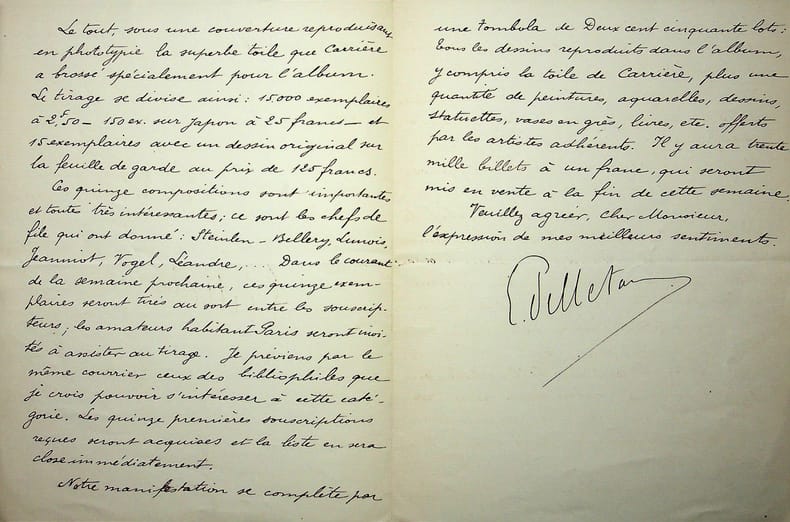 Le tout, sous une couverture reproduisant
en phototypie la superbe toile que Carrière
a brossé spécialement pour l'album.
Le tirage se divise ainsi : 15,000 exemplaires
à 2f50 — 150 ex. sur Japon à 25 francs — et
15 exemplaires avec un dessin original sur
la feuille de garde au prix de 125 francs.
Ces quinze compositions sont importantes
et toute très intéressantes ; ce sont les chefs de
file qui ont donné : Steinlen - Bellery, Lunois,
Jeanniot, Vogel, Léandre, ... Dans le courant
de la semaine prochaine, ces quinze exem-
plaires seront tirés au sort entre les souscrip-
teurs ; les amateurs habitant Paris seront invi-
tés à assister au tirage. Je préviens par le
même courrier ceux des bibliophiles que
je crois pouvoir s'intéresser à cette caté-
gorie. Les quinze premières souscriptions
reçues seront acquises et la liste en sera
close immédiatement.
Notre manifestation se complète par
une Tombola de Deux cent cinquante lots :
tous les dessins reproduits dans l'album,
y compris la toile de Carrière, plus une
quantité de peintures, aquarelles, dessins,
statuettes, vases en grès, livres, etc. offerts
par les artistes adhérents. Il y aura trente
mille billets à un franc, qui seront
mis en vente à la fin de cette semaine.
Veuillez agréer, Cher Monsieur,
l'expression de mes meilleurs sentiments.
E. Pelletan